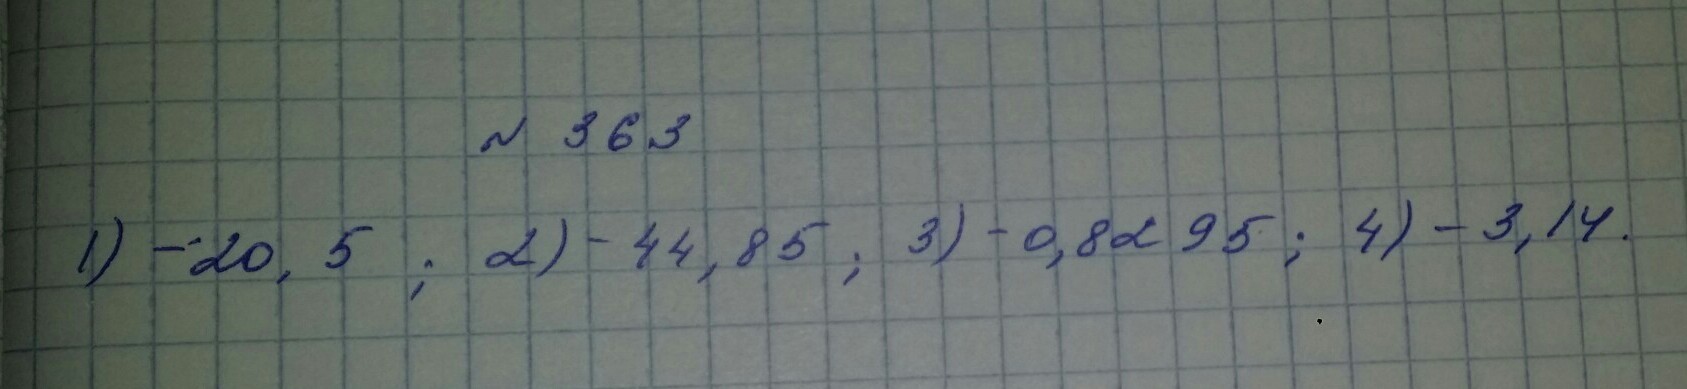 № 363
1) -20,5; 2) -44,85; 3) -0,8295; 4) -3,14.